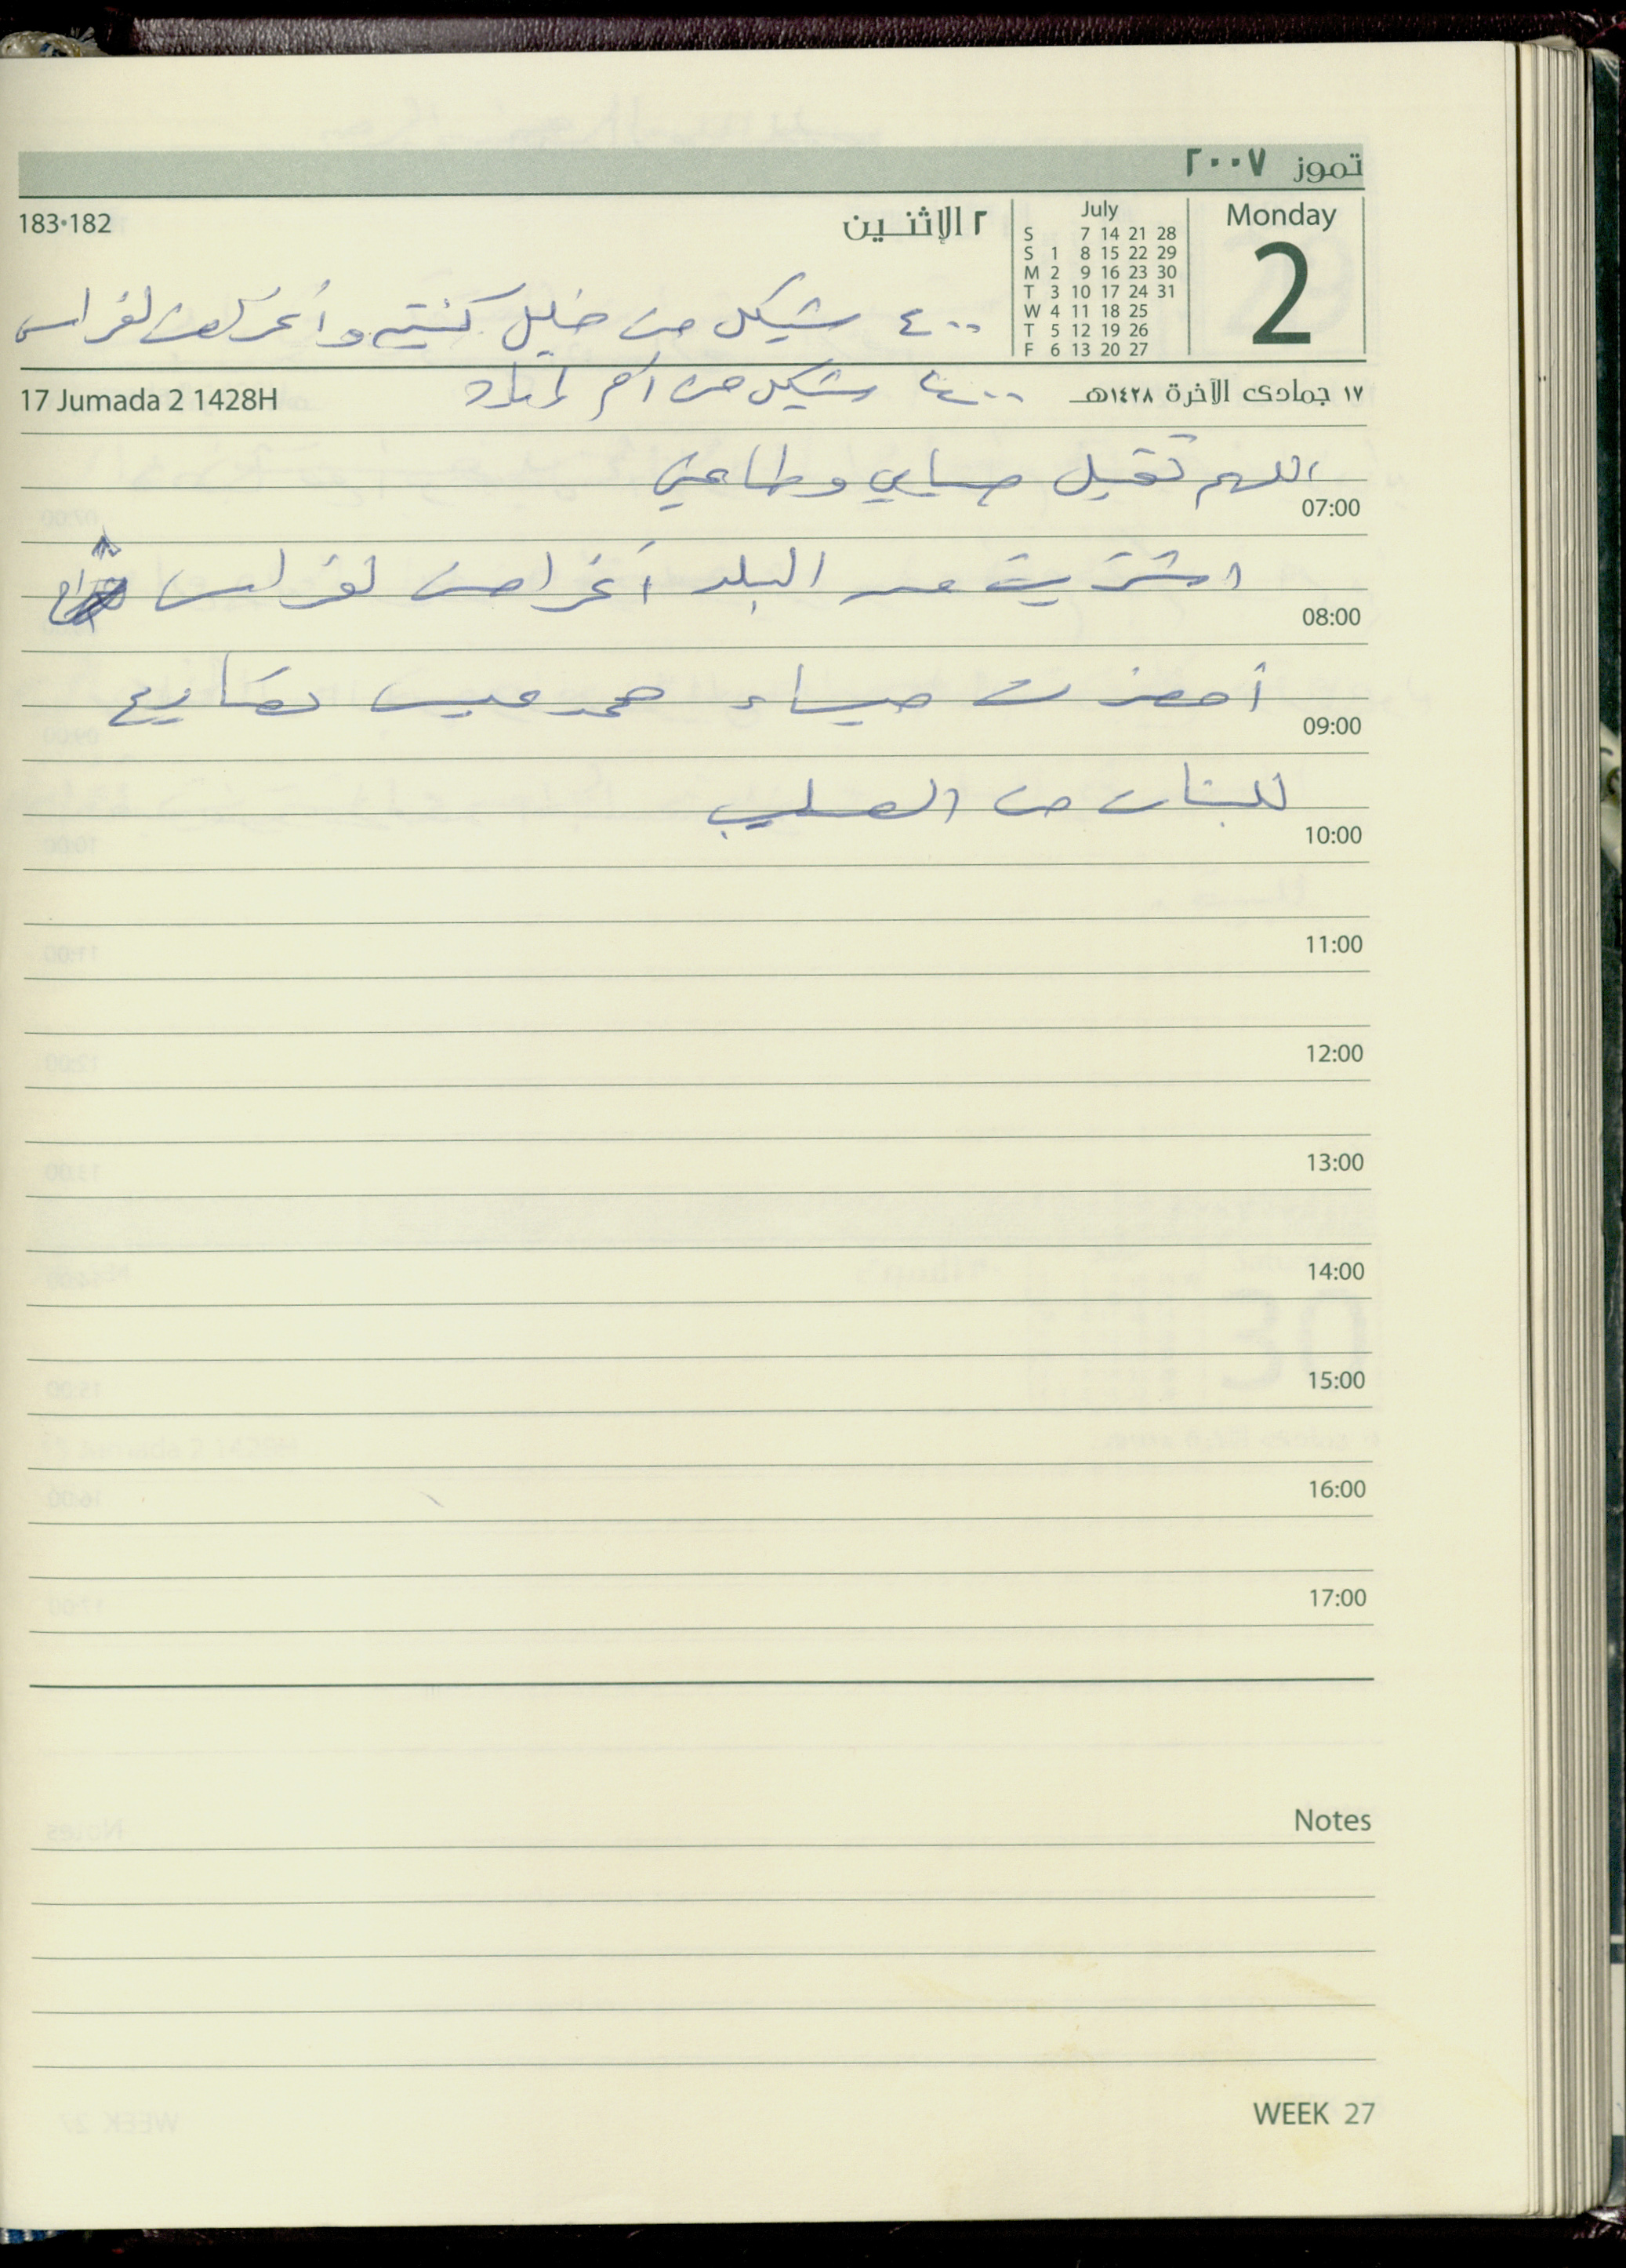 تموز ٢٠٠٧
Monday
2
July
S 7 14 21 28
S 1 8 15 22 29
M 2 9 16 23 30
T 3 10 17 24 31
W 4 11 18 25
T 5 12 19 26
F 6 13 20 27
٢ الإثنـــين
183•182
٤٠٠ شيكل من خليل وأعز لفراس
١٧ جمادى الآخرة ١٤٢٨هـ
٤٠٠ شيكل من
17 Jumada 2 1428H
اللهم تقبل صيامي وطاعتي
07:00
اشتريت من البلد أغراض لفراس
08:00
أحضرت ميساء
09:00
للبنات من الصليب
10:00
11:00
12:00
13:00
14:00
15:00
16:00
17:00
Notes
WEEK 27